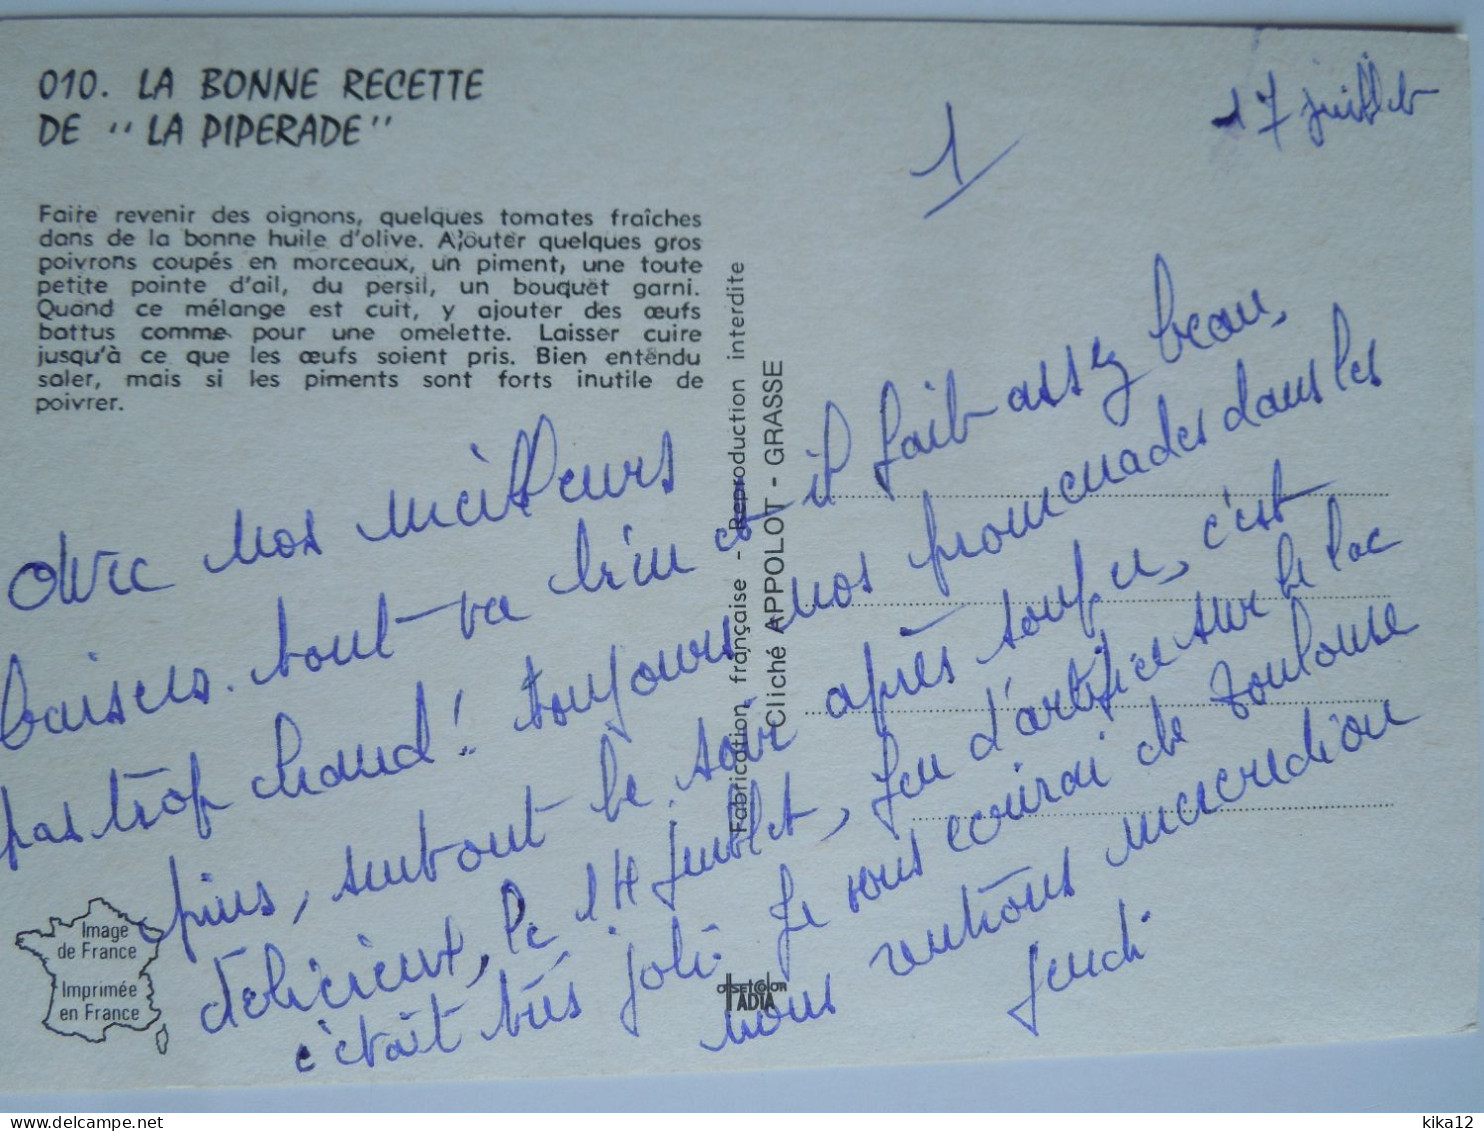 010. LA BONNE RECETTE
DE "LA PIPERADE"
Faire revenir des oignons, quelques tomates fraîches
dans de la bonne huile d'olive. Ajouter quelques gros
poivrons coupés en morceaux, un piment, une toute
petite pointe d'ail, du persil, un bouquet garni.
Quand ce mélange est cuit, y ajouter des œufs
battus comme pour une omelette. Laisser cuire
jusqu'à ce que les œufs soient pris. Bien entendu
saler, mais si les piments sont forts inutile de
poivrer.
1
17 juillet
Avec nos meilleurs
baisers. tout va bien et il fait assez beau,
pas trop chaud! toujours nos promenades dans les
pins, surtout le soir après souper, c'est
délicieux, le 14 juillet, feu d'artifice sur le lac
c'était très joli. Je vous écrirai de Toulouse
nous rentrons mercredi ou
jeudi
Fabrication française - Reproduction interdite
Cliché APPOLOT - GRASSE
Image
de France
Imprimée
en France
OFFSETCOLOR
IADIA
kika12